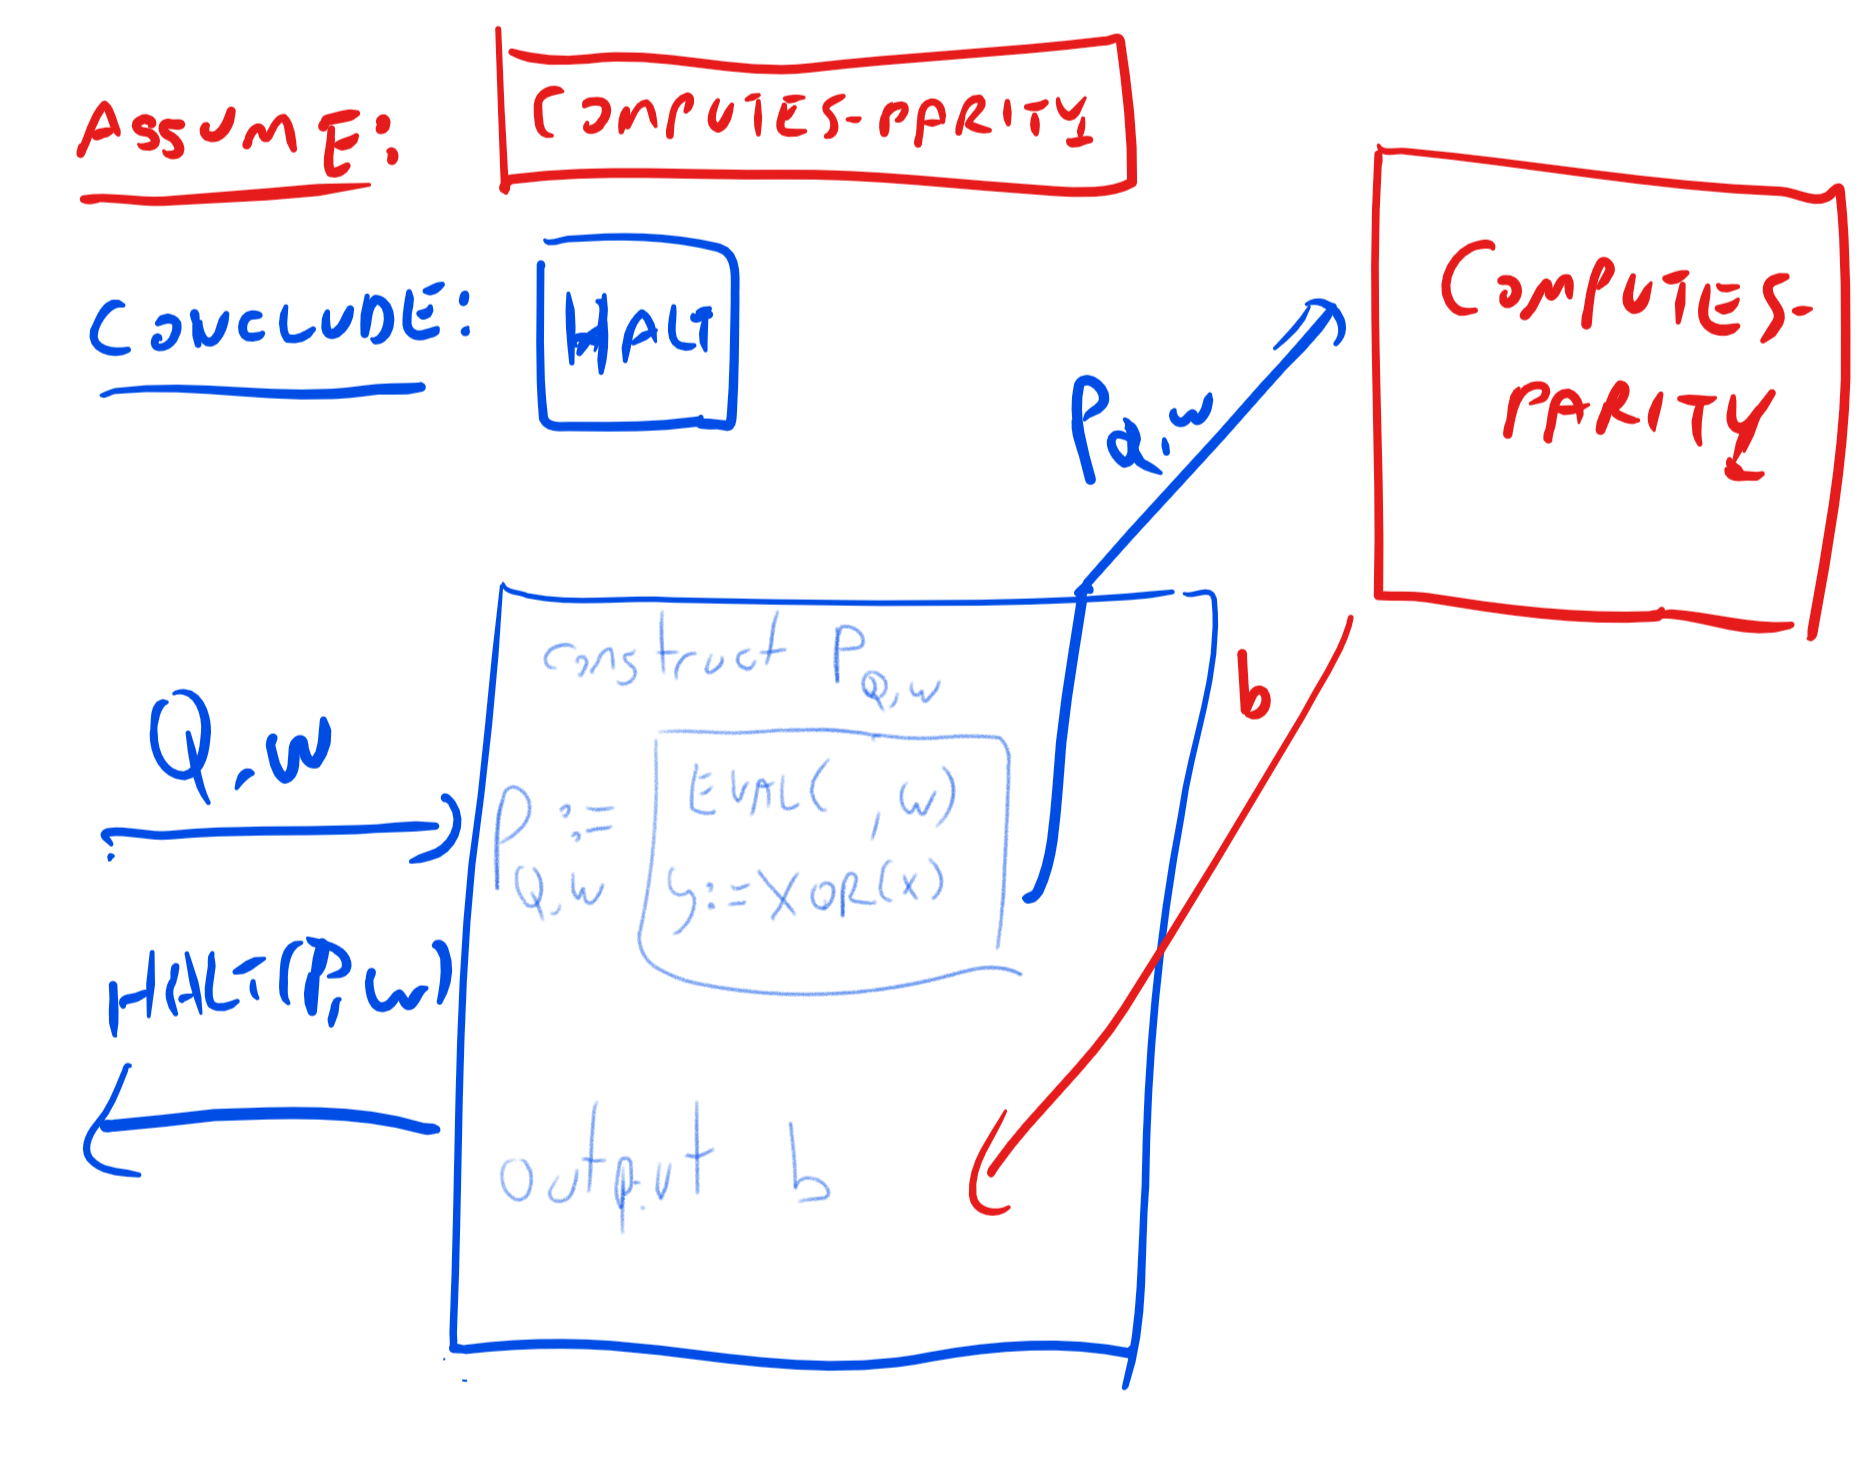 ASSUME: COMPUTES-PARITY
CONCLUDE: HALT
COMPUTES-
PARITY
PQ,w
b
Q,w
HALT(P,w)
construct PQ,w
PQ,w := EVAL( , w)
y:=XOR(x)
output b